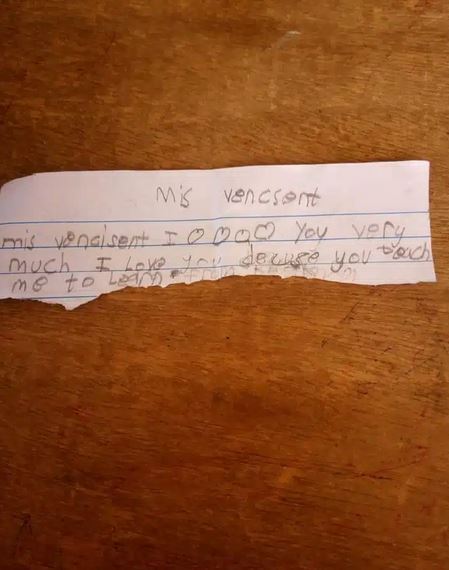 Mis vencsont
mis vencisent I ♡♡♡♡ you very
much I Love you becuse you teach
me to Learn